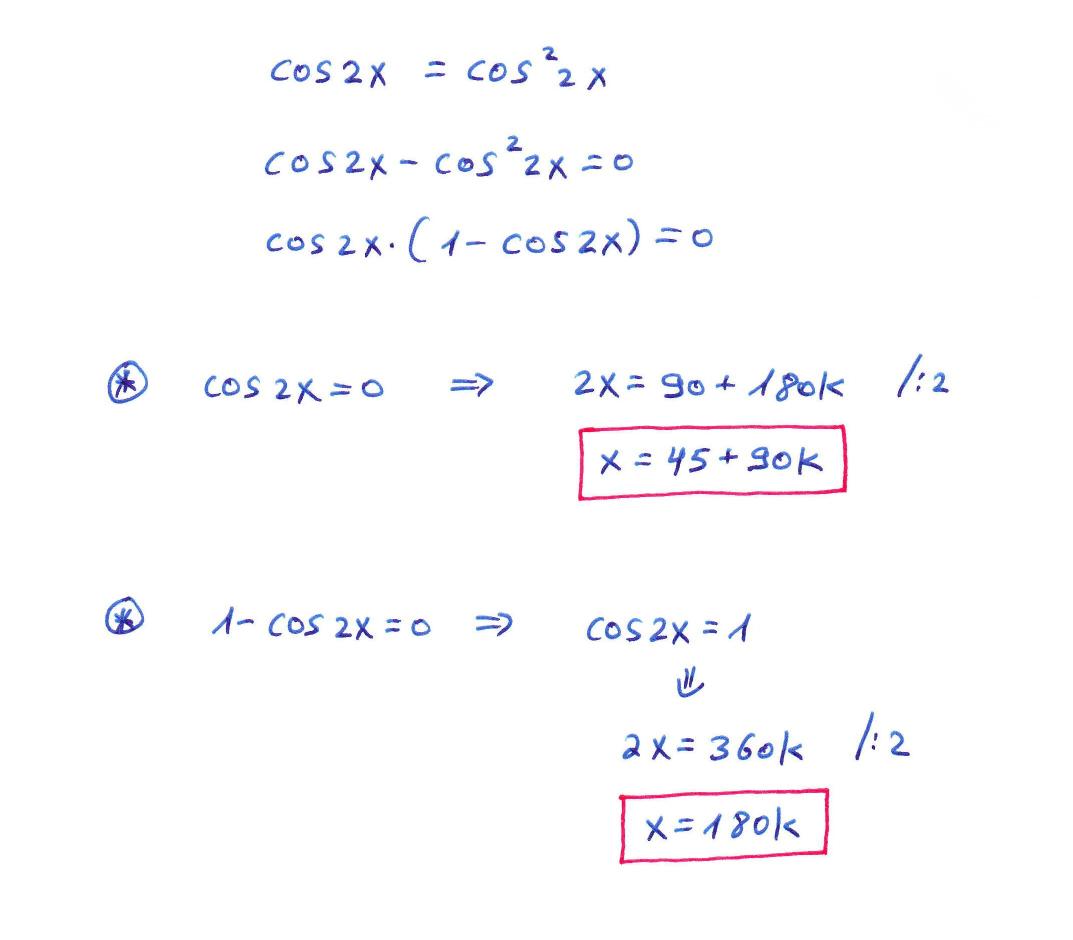 cos2x = cos²2x
cos2x - cos²2x = 0
cos2x·(1 - cos2x) = 0
⊛ cos2x = 0 ⇒ 2x = 90 + 180k /:2
x = 45 + 90k
⊛ 1 - cos2x = 0 ⇒ cos2x = 1
⇓
2x = 360k /:2
x = 180k